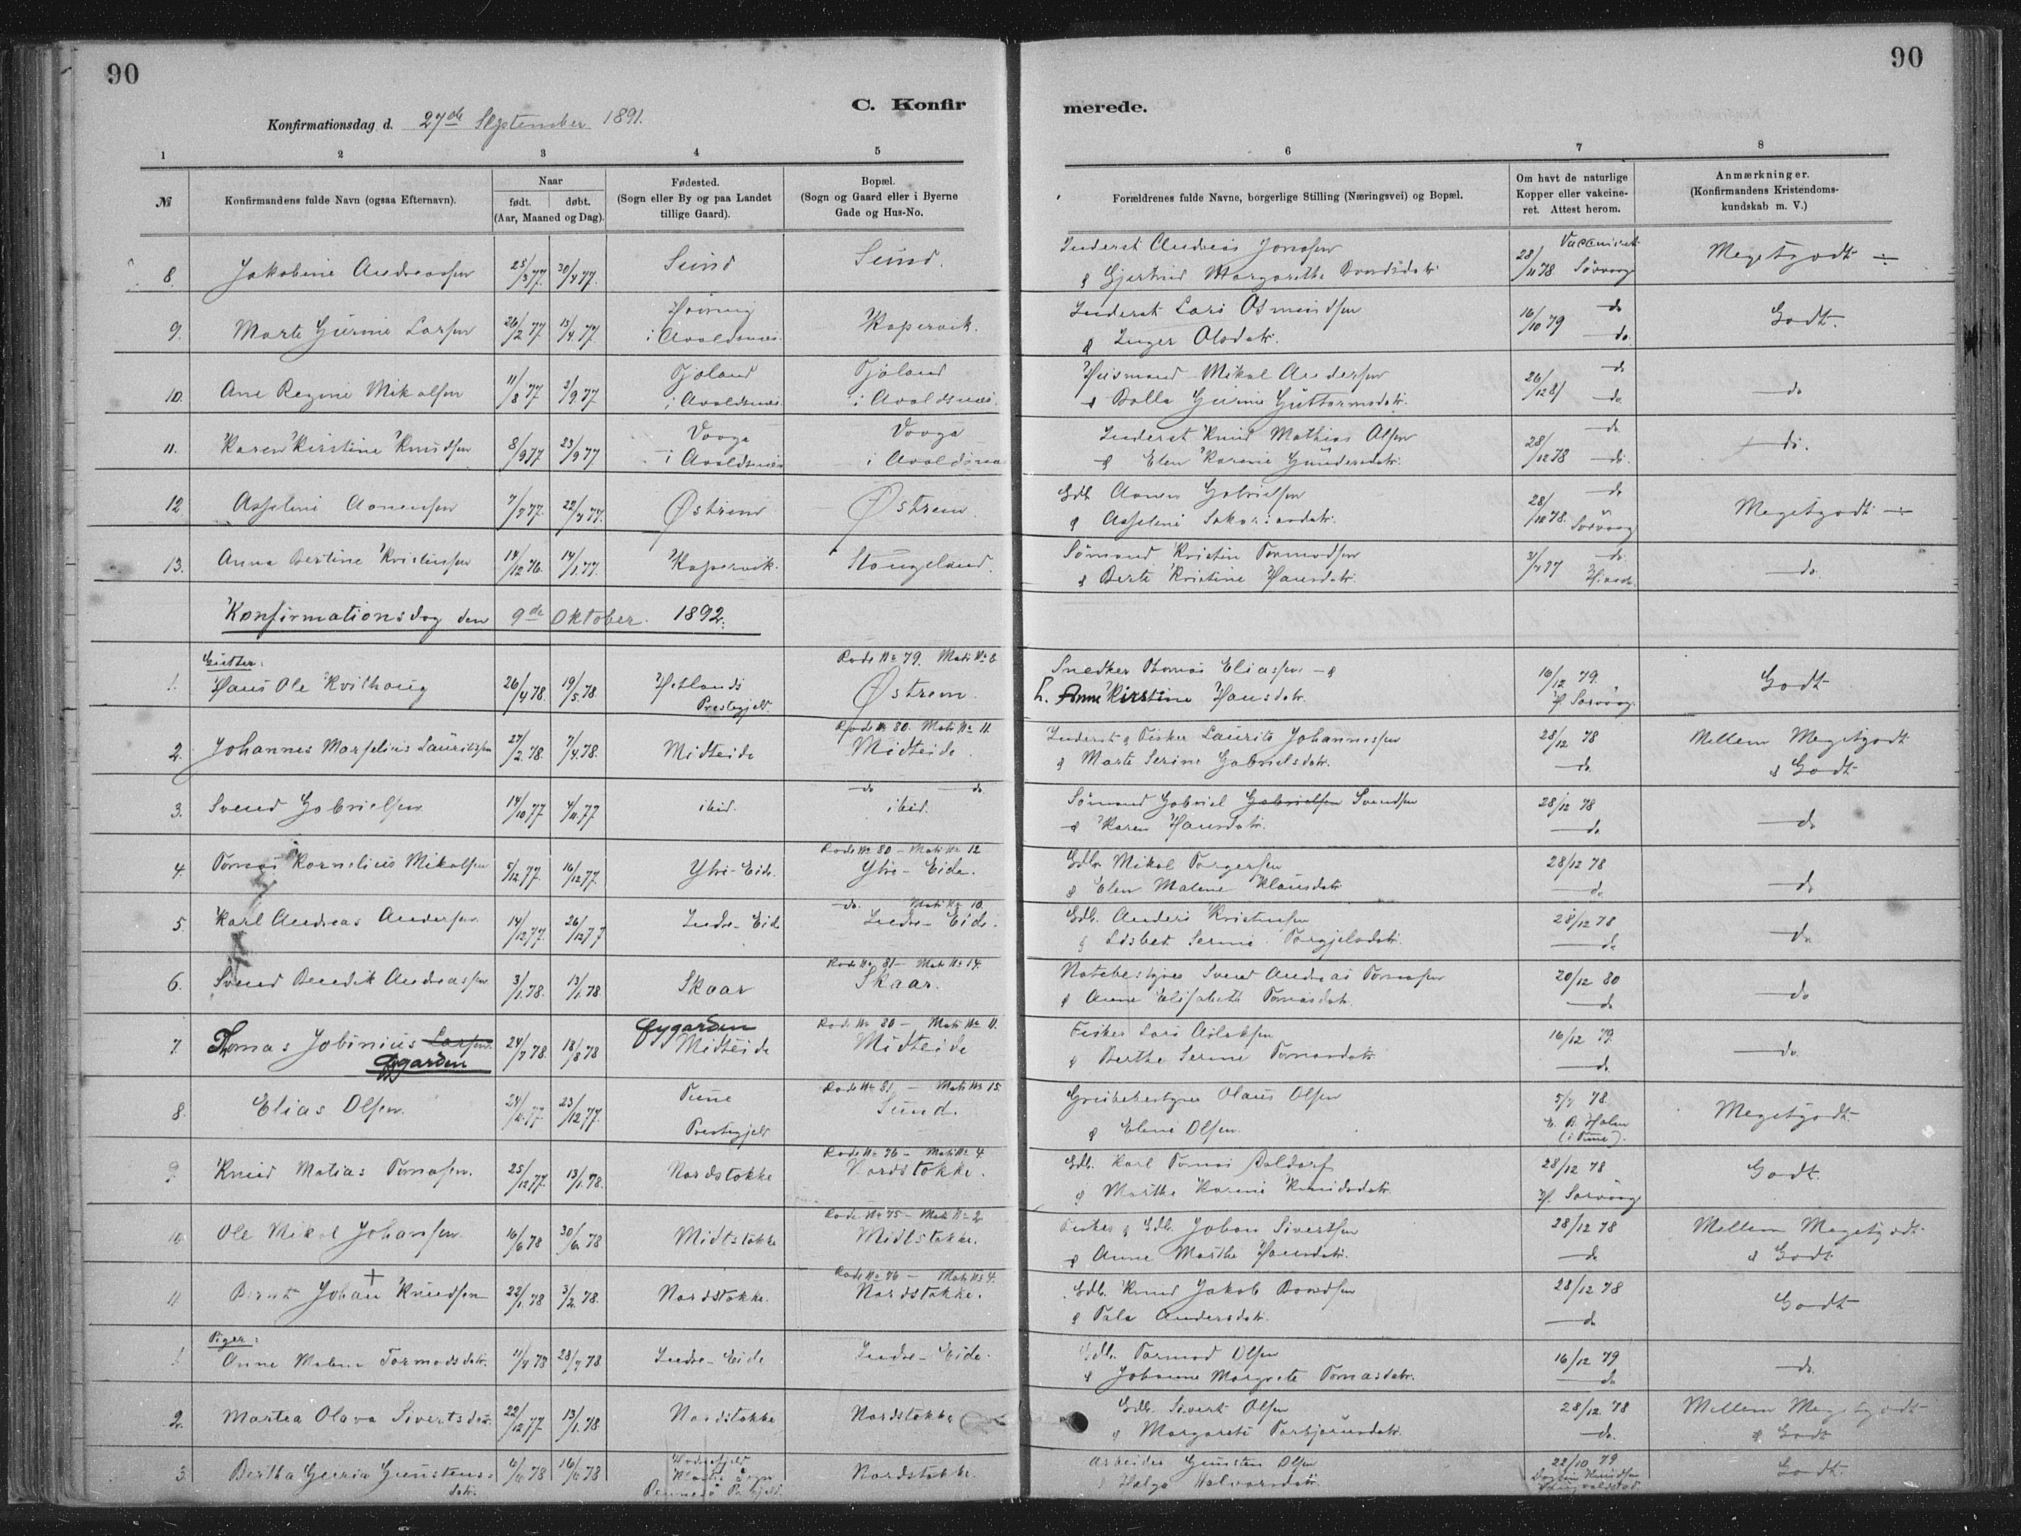 90
90
C. Konfirmerede.
Konfirmationsdag d. 27de September 1891.
1 2 3 4 5 6 7 8
№
Konfirmandens fulde Navn (ogsaa Efternavn).
Naar
født. døbt.
(Aar, Maaned og Dag).
Fødested.
(Sogn eller By og paa Landet
tillige Gaard).
Bopæl.
(Sogn og Gaard eller i Byerne
Gade og Hus-No.
Forældrenes fulde Navne, borgerlige Stilling (Næringsvei) og Bopæl.
Om havt de naturlige
Kopper eller vakcine-
ret. Attest herom.
Anmærkninger.
(Konfirmandens Kristendoms-
kundskab m. V.)
8. Jakobine Andreassen 25/3 77. 30/4 77. Sund Sund. Inderst Andreas Jonasen
& Gjertrud Margrethe 28/11 78 Megetgodt
9. Marte Gurine Larsen 26/2 77 15/4 77 i Avaldsnæs Kopervik. Inderst Lars Osmundsen
& Inger Olsdatr. 16/10 79 do do Godt.
10. Ane Regine Mikalsen 11/8 77 2/9 77 Tjøland
i Avaldsnæs. Tjøland
i Avaldsnæs. Husmand Mikal Andersen
& Gurine Guttormsdatr. 26/12 81 do do do
11. Karen Kirstine Knudsen 8/9 77 23/9 77 Vaaga
i Avaldsnæs Vaaga
i Avaldsnæs Inderst Knud Mathias Olsen
& Elen Karine Gundersdatr. 28/12 78 do do do.
12. 22/4 77. Østrem Østrem. Gdb. Gabrielsen
& 28/12 78. do Sørvaag Megetgodt
13. Anna Bertine Kristensen 14/12 76. 14/1 77. Kopervik. Stangeland. Sømand Kristen Tormodsen
& Berte Kristine Hansdatr. do do
Konfirmationsdag den 9de Oktober 1892.
Gutter:
1. Hans Ole Kvilhaug 26/4 78 19/5 78 Hetlands
Prestegjeld Rode No 79. Matr No 8
Østrem. Snedker Thomas Eliassen &
h. Anne Kirstine Hansdatr. 16/12 79. Godt
2. Johannes Marselius Lauritssen 27/2 78. 7/4 78. Midteide Rode No 80. Matr No 11.
Midteide. Inderst & Fisker Laurits Johannessen
& Marte Serine Gabrielsdatr. 28/12 78
do Mellem Megetgodt
& Godt
3. Svend Gabrielsen 14/10 77 4/11 77 ibid. do do
ibid. Sømand Gabriel Gabrielsen Svendsen
& Karen Hansdatr. 28/12 78
do do
4. Tomas Kornelius Mikalsen 5/12 77. 16/12 77. Ytre-Eide Rode No 80 - Matr No 12
Ytre-Eide. Gdb. Mikal Torgersen
& Elen Malene Klausdatr 28/12 78
do do
5. Karl Andreas Andersen 14/12 77. 26/12 77 Indre-Eide do. Matr No 10.
Indre-Eide. Gdb. Anders Kristensen
& Lisbet Serine Torgjelsdatr. 28/12 78
do do
6. Svend Bendik Andreassen 3/1 78. 13/1 78 Skaar Rode No 81 - Matr No 14.
Skaar. Notebestyrer Svend Andreas Tomasen
& Anne Elisabeth Tomasdatr. 20/12 80
do do
7. Thomas Jobinius Larsen
Øygarden 24/7 78. 18/8 78 Øygarden
Midteide Rode No 80 - Matr No 11.
Midteide Fisker Lars Aslaksen
& Berthe Serine Tomasdatr. 16/12 79.
do do
8. Elias Olsen. 23/12 77. Tune
Prestegjeld Rode No 81 - Matr No 15.
Sund. Grubebestyrer Olaus Olsen
& Eline Olsen. 78.
(i Tune). Megetgodt
9. Knud Matias Tomasen. 25/12 77. 13/1 78. Nordstokke Rode No 76 - Matr No 4
Nordstokke. Gdb. Karl Tomas
& Marthe Karine Knudsdatr. 28/12 78 Godt
10 Ole Mikal Johansen. 16/6 78 30/6 78 Midtstokke Rode No 75 - Matr No 2
Midtstokke. Fisker & Gdb. Johan Sivertsen
& Anne Marthe Hansdatr. 28/12 78
do Mellem Megetgodt
& Godt
11 Bernt Johan Knudsen 22/1 78 3/2 78. Nordstokke. Rode No 76 - Matr No 4.
Nordstokke. Gdb. Knud Jakob
& Andersdatr. 28/12 78
do Godt
Piger:
1 Anne Malene Tormodsdatr. 28/7 78 Indre-Eide Indre-Eide. Gdb. Tormod Olsen
& Johanne Margrete Tomasdatr. 16/12 79
do do
2. Martea Olava Sivertsdatr. 22/12 77 13/1 78 Nordstokke Nordstokke Gdb. Sivert Olsen
& Margarete Torbjørnsdatr. 28/12 78
do. Mellem Megetgodt
& Godt
3. Bertha Guria Gunstens-
datr. 6/6 78 16/6 78 Nordstokke. Arbeider Gunsten Olsen
& Helga Halvorsdatr. 22/10 79 Godt.